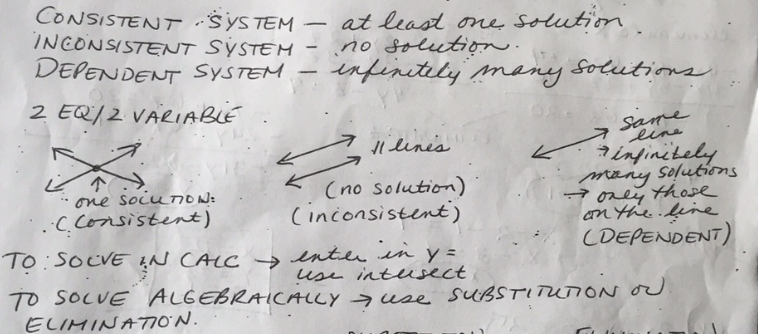 CONSISTENT SYSTEM – at least one solution
INCONSISTENT SYSTEM – no solution.
DEPENDENT SYSTEM – infinitely many solutions
2 EQ/2 VARIABLE
one SOLUTION:
(consistent)
// lines
(no solution)
(inconsistent)
same
line
→ infinitely
many solutions
→ only those
on the line
(DEPENDENT)
TO SOLVE IN CALC → enter in y =
use intersect
TO SOLVE ALGEBRAICALLY → use SUBSTITUTION OR
ELIMINATION.